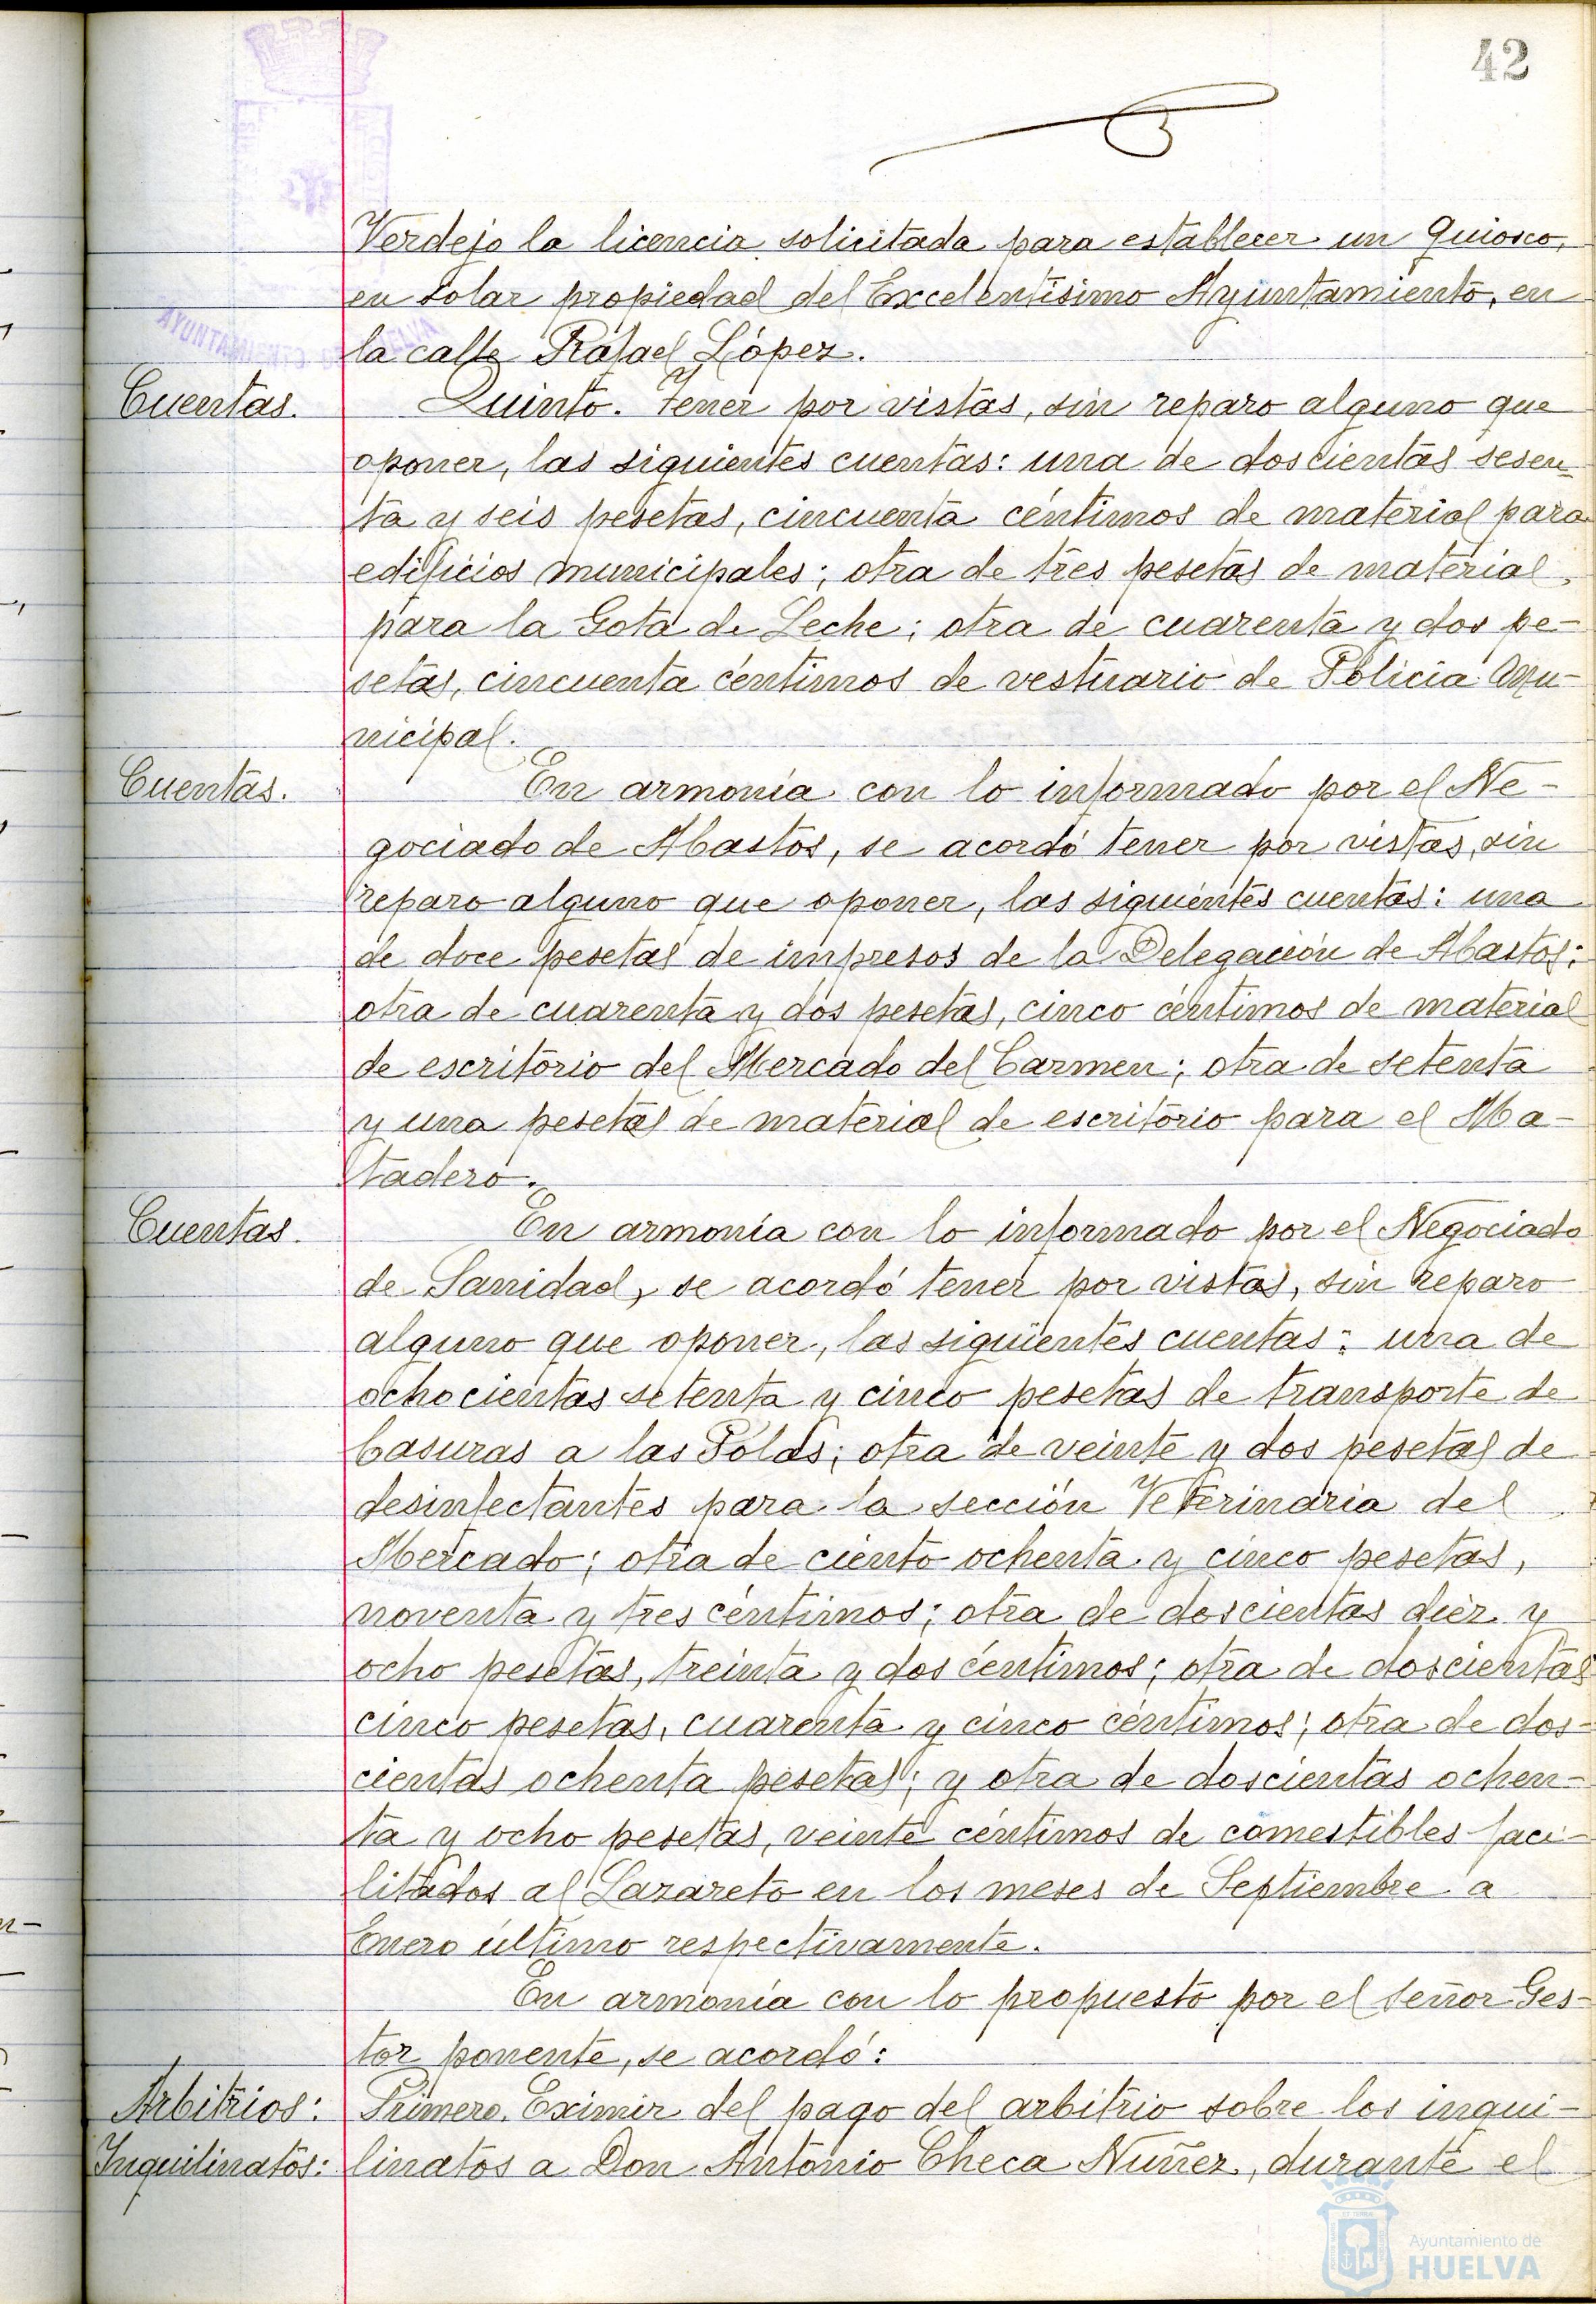 42
Verdejo la licencia solicitada para establecer un Quiosco,
en solar propiedad del Excelentísimo Ayuntamiento, en
la calle Rafael López.
AYUNTAMIENTO DE HUELVA
Cuentas.
Quinto. Tener por vistas, sin reparo alguno que
oponer, las siguientes cuentas: una de doscientas sesen-
ta y seis pesetas, cincuenta céntimos de material para
edificios municipales; otra de tres pesetas de material
para la Gota de Leche; otra de cuarenta y dos pe-
setas, cincuenta céntimos de vestuario de Policia Mu-
nicipal.
Cuentas.
En armonía con lo informado por el Ne-
gociado de Abastos, se acordó tener por vistas, sin
reparo alguno que oponer, las siguientes cuentas: una
de doce pesetas de impresos de la Delegación de Abastos;
otra de cuarenta y dos pesetas, cinco céntimos de material
de escritorio del Mercado del Carmen; otra de setenta
y una pesetas de material de escritorio para el Ma-
tadero.
Cuentas.
En armonía con lo informado por el Negociado
de Sanidad, se acordó tener por vistas, sin reparo
alguno que oponer, las siguientes cuentas: una de
ochocientas setenta y cinco pesetas de transporte de
basuras a las Polas; otra de veinte y dos pesetas de
desinfectantes para la sección Veterinaria del
Mercado; otra de ciento ochenta y cinco pesetas,
noventa y tres céntimos; otra de doscientas diez y
ocho pesetas, treinta y dos céntimos; otra de doscientas
cinco pesetas, cuarenta y cinco céntimos; otra de dos-
cientas ochenta pesetas; y otra de doscientas ochen-
ta y ocho pesetas, veinte céntimos de comestibles faci-
litados al Lazareto en los meses de Septiembre a
Enero último respectivamente.
En armonía con lo propuesto por el señor Ges-
tor ponente, se acordó:
Arbitrios:
Primero. Eximir del pago del arbitrio sobre los inqui-
Inquilinatos:
linatos a Don Antonio Checa Nuñez, durante el
Ayuntamiento de
HUELVA